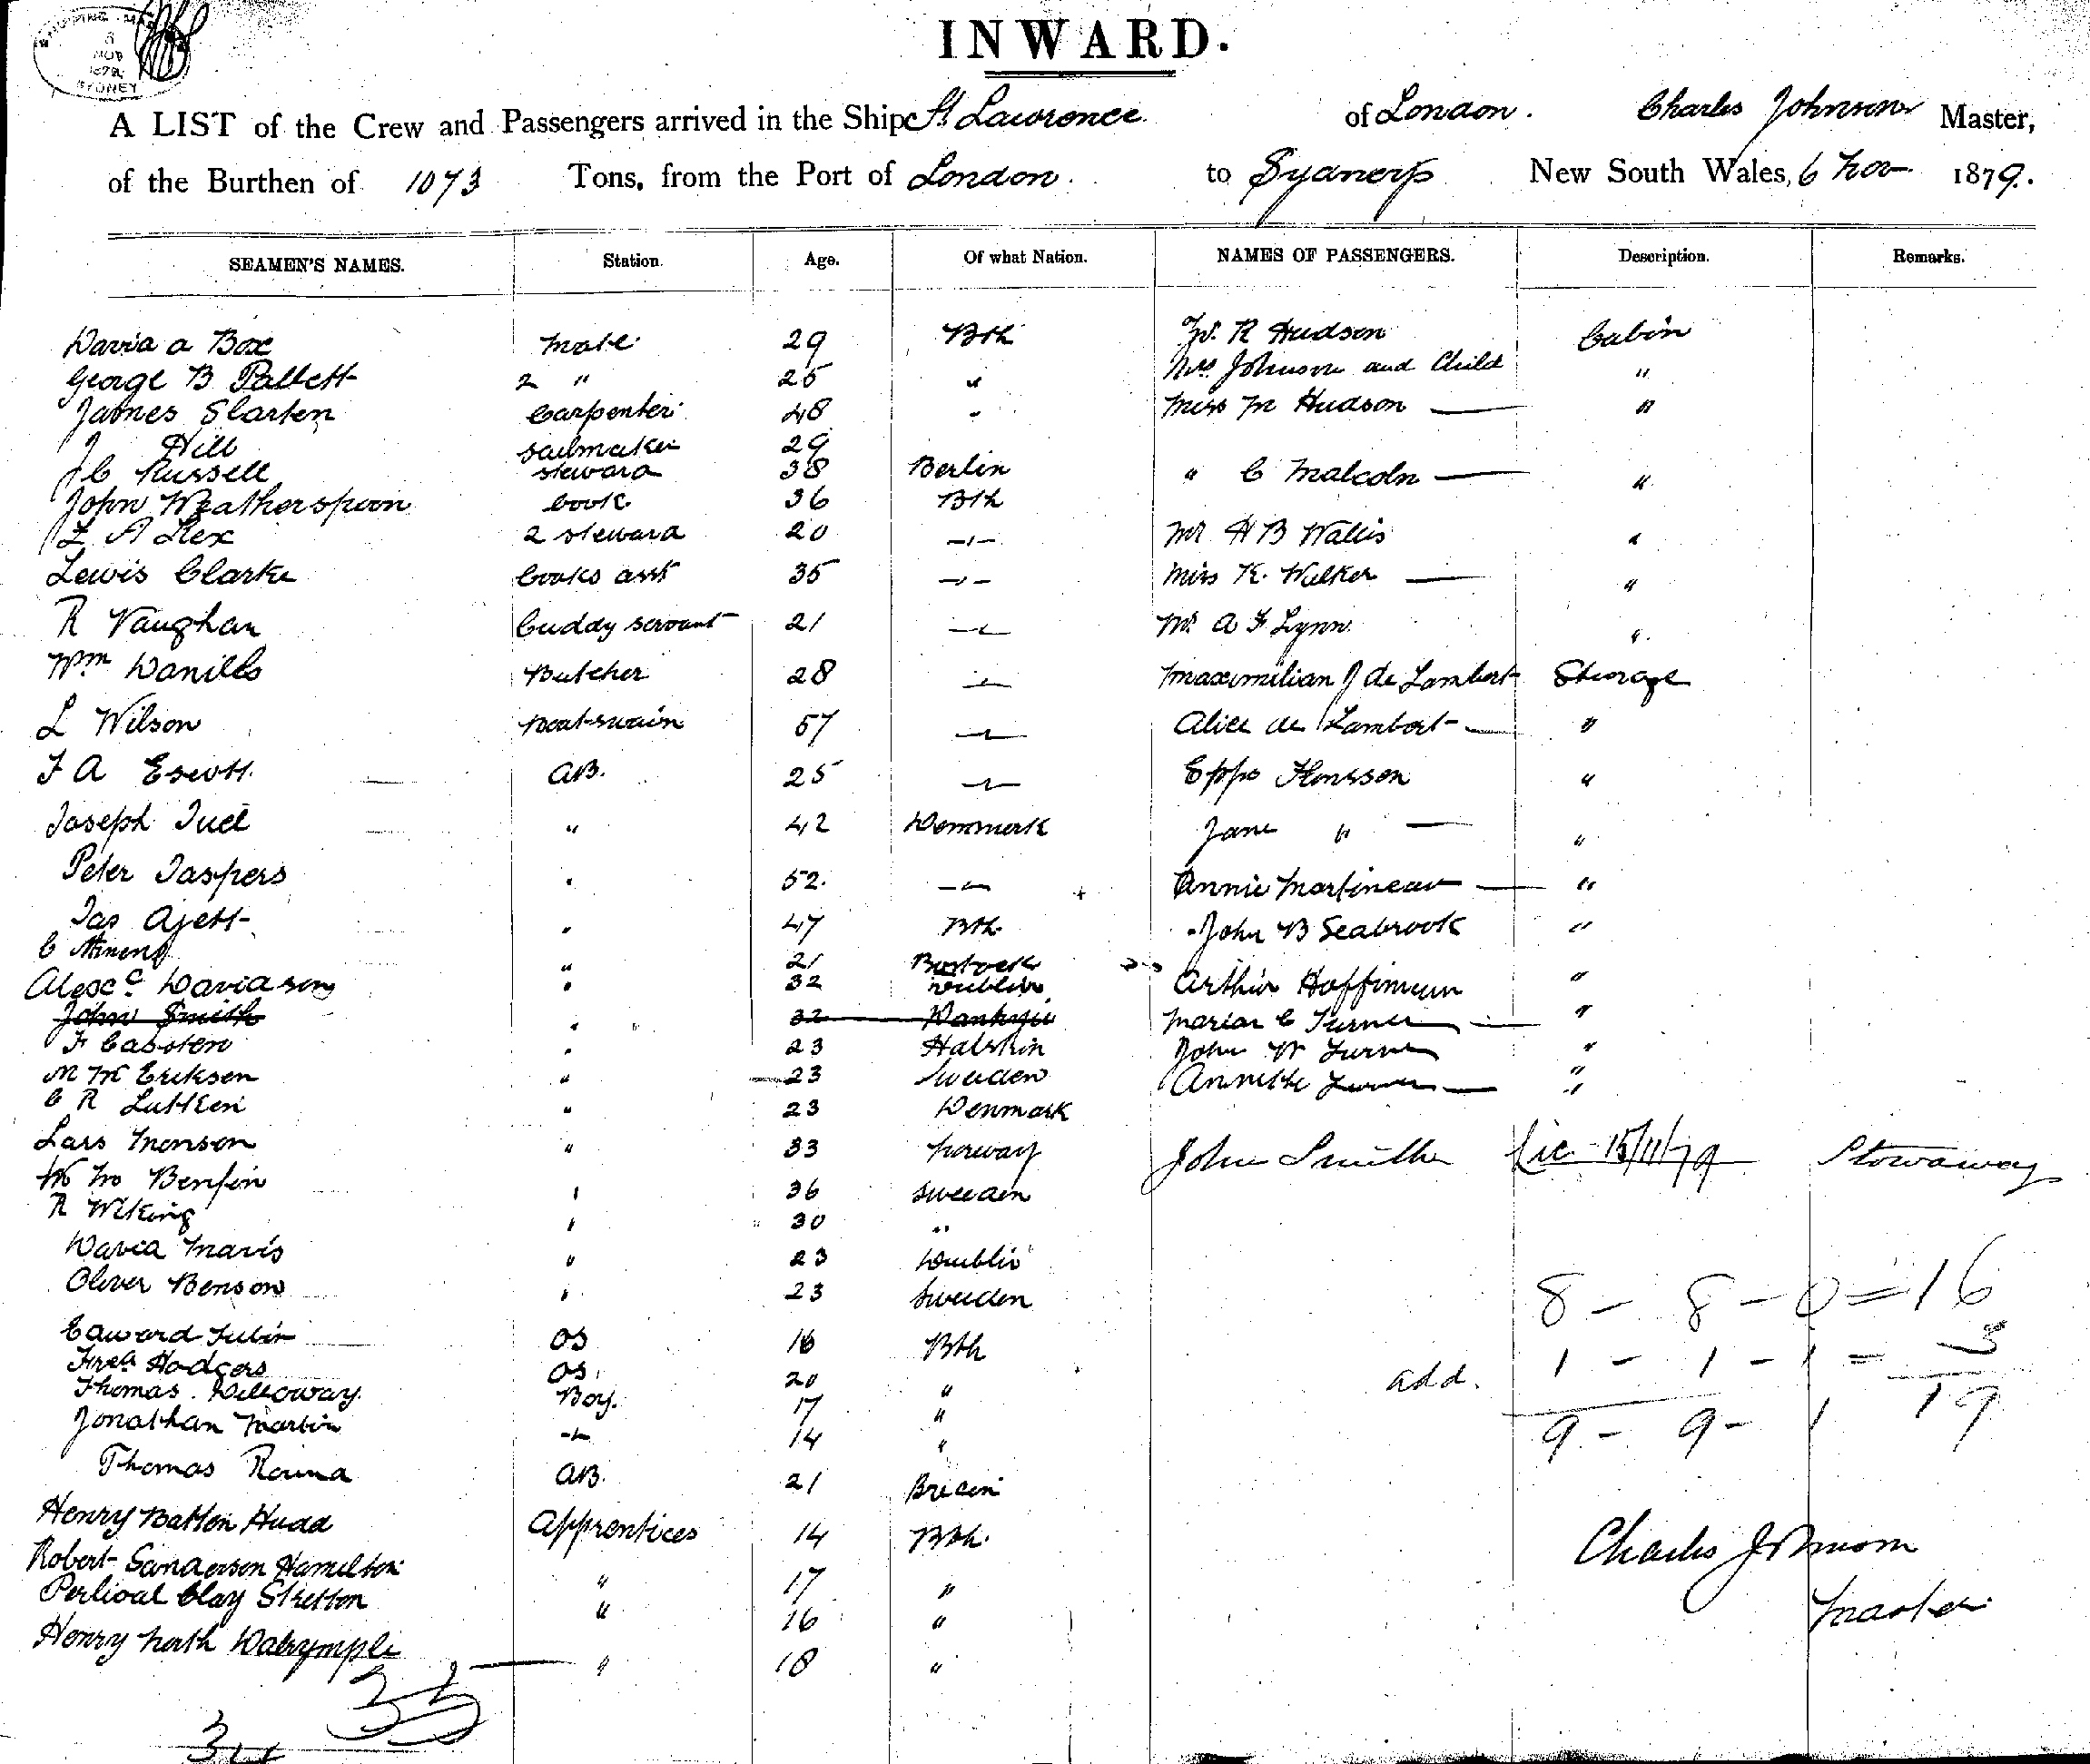 SHIPPING MAS
6
NOV
1879
SYDNEY
INWARD.
A LIST of the Crew and Passengers arrived in the Ship St Lawrence of London. Charles Johnson Master,
of the Burthen of 1073 Tons, from the Port of London. to Sydney New South Wales, 6 Nov 1879.
SEAMEN'S NAMES. Station. Age. Of what Nation. NAMES OF PASSENGERS. Description. Remarks.
David A Box Mate 29 Bth R Hudson Cabin
George B Pallett 2 " 25 " Mrs Johnson and Child "
James Slarten Carpenter 48 " Miss M Hudson "
J Hill Sailmaker 29
J C Russell Steward 38 Berlin " C Malcolm "
John Weatherspoon Cook 36 Bth
L A Rex 2 Steward 20 -"- Mr H B Wallis "
Lewis Clarke Cooks asst 35 -"- Miss K. Walker "
R Vaughan Cuddy servant 21 -"- Mr A F Lynn "
Wm Daniells Butcher 28 -"- Maximilian J de Lambert Steerage
L Wilson Boatswain 57 -"- Alice de Lambert "
F A Escott AB. 25 -"- Eppo Honsson "
Joseph Juel " 42 Denmark Jane " "
Peter Jaspers " 52. -"- Annie Martineau "
Jas Ajett " 47 Bth John B Seabrook "
C 21 Arthur Hoffmann "
Alexr Davidson " 32 Dublin
John Smith " 32 Marian C Turner "
F Carsten " 23 Holstein John W Turner "
M Eriksen " 23 Sweden Annette Turner "
C R Lutken " 23 Denmark
Lars Monson " 33 Norway John Smith Lic 15/11/79 Stowaway
Benfin " 36 Sweden
R Wiking " 30 "
David Mavis " 23 Dublin
Oliver Benson " 23 Sweden 8 - 8 - 0 = 16
Edward Tubin OS 16 Bth
Fredk Hodgers OS 20 " add. 1 - 1 - 1 = 3
Thomas Willoway Boy. 17 "
Jonathan Martin -"- 14 " 9 - 9 - 1 19
Thomas Round AB. 21
Henry Batten Hudd Apprentices 14 Bth.
Robert Sanderson Hamilton " 17 " Charles Johnson
Percival Clay Stretton " 16 " Master
Henry North Dalrymple " 18 "
33
34